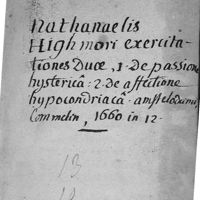 Nathanaelis
Highmori exercita-
tiones Duæ, 1. de passione
hystericâ : 2. de affectione
hypocondriacâ. amstelodami,
Commelin, 1660 in 12.
13